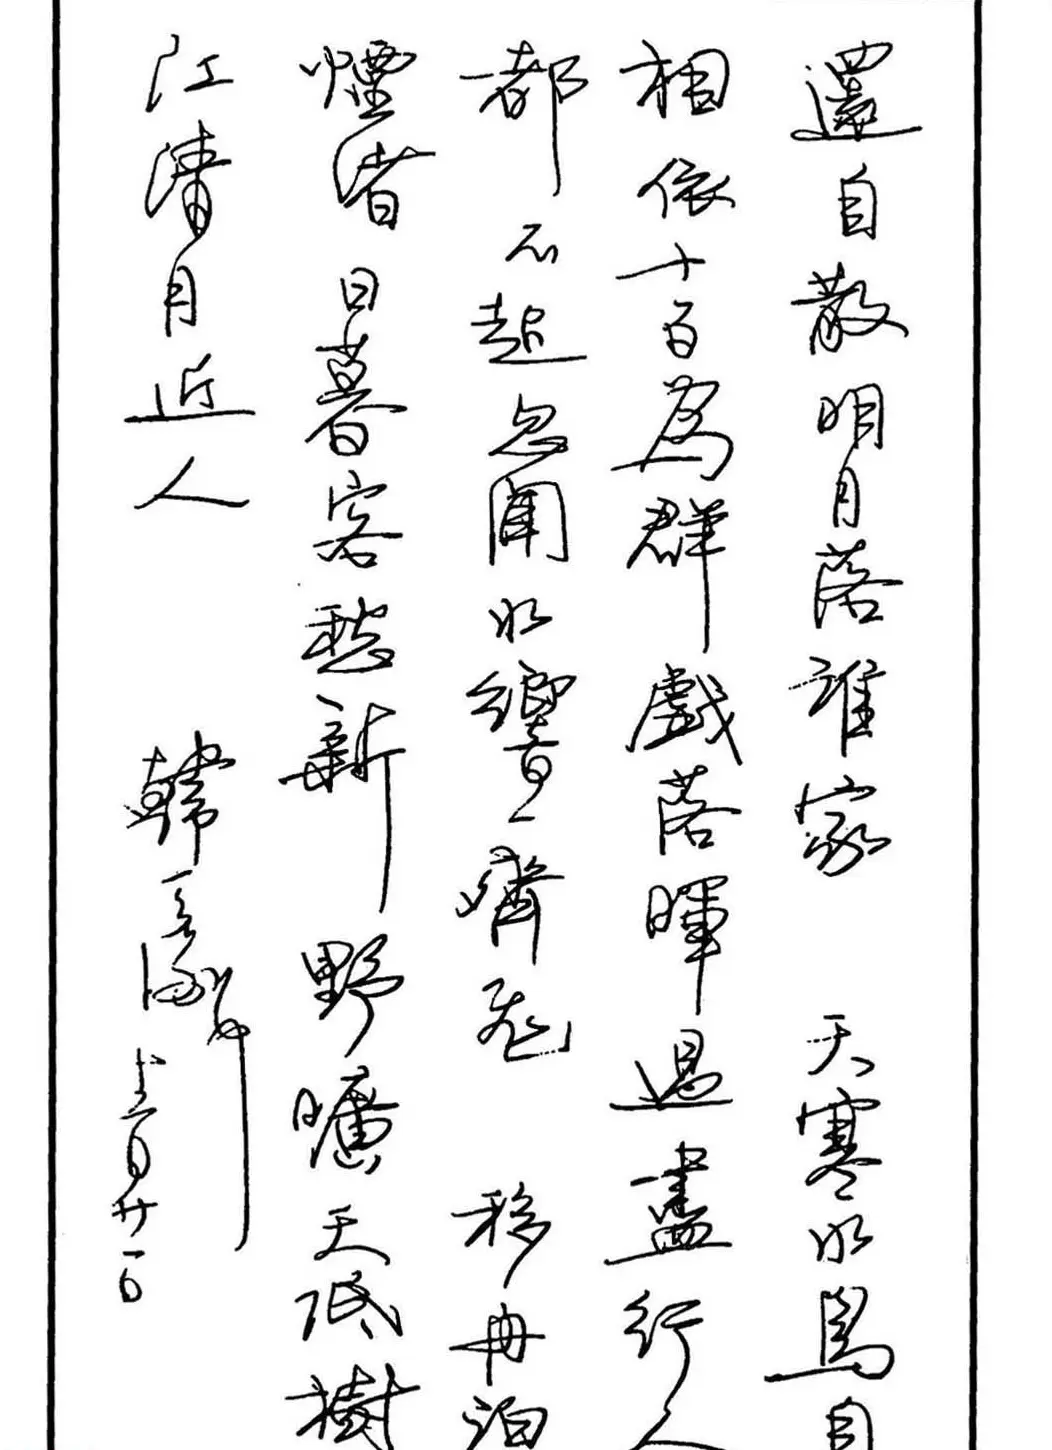 還自散明月落誰家 天寒水鳥自
相依十百為群戲落暉過盡行人
都不起忽聞水響一齊飛 移舟泊
煙渚日暮客愁新野曠天低樹
江清月近人 韓 月廿一日